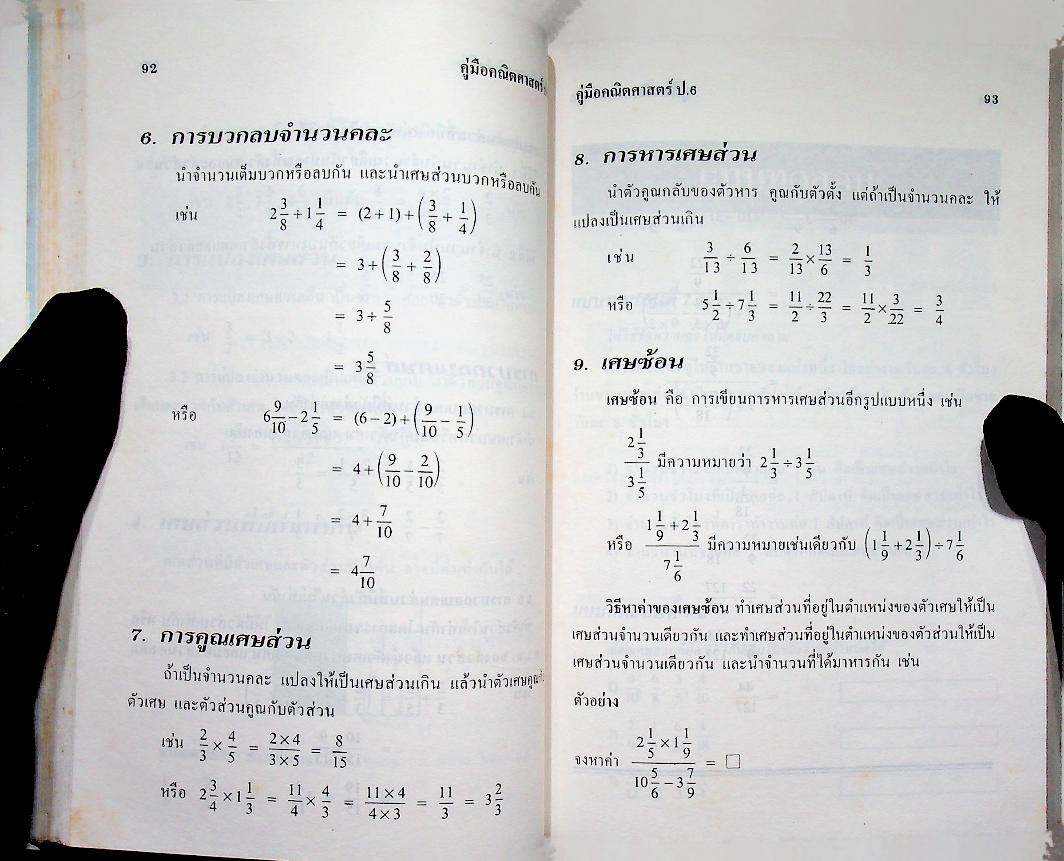 92
คู่มือคณิตศาสตร์
6. การบวกลบจำนวนคละ
นำจำนวนเต็มบวกหรือลบกัน และนำเศษส่วนบวกหรือลบกัน
เช่น 2 3/8 + 1 1/4 = (2 + 1) + (3/8 + 1/4)
= 3 + (3/8 + 2/8)
= 3 + 5/8
= 3 5/8
หรือ 6 9/10 − 2 1/5 = (6 − 2) + (9/10 − 1/5)
= 4 + (9/10 − 2/10)
= 4 + 7/10
= 4 7/10
7. การคูณเศษส่วน
ถ้าเป็นจำนวนคละ แปลงให้เป็นเศษส่วนเกิน แล้วนำตัวเศษคูณ
ตัวเศษ และตัวส่วนคูณกับตัวส่วน
เช่น 2/3 × 4/5 = (2 × 4)/(3 × 5) = 8/15
หรือ 2 3/4 × 1 1/3 = 11/4 × 4/3 = (11 × 4)/(4 × 3) = 11/3 = 3 2/3
คู่มือคณิตศาสตร์ ป.6
93
8. การหารเศษส่วน
นำตัวคูณกลับของตัวหาร คูณกับตัวตั้ง แต่ถ้าเป็นจำนวนคละ ให้
แปลงเป็นเศษส่วนเกิน
เช่น 3/13 ÷ 6/13 = 2/13 × 13/6 = 1/3
หรือ 5 1/2 ÷ 7 1/3 = 11/2 ÷ 22/3 = 11/2 × 3/22 = 3/4
9. เศษซ้อน
เศษซ้อน คือ การเขียนการหารเศษส่วนอีกรูปแบบหนึ่ง เช่น
(2 1/3)/(3 1/5) มีความหมายว่า 2 1/3 ÷ 3 1/5
หรือ (1 1/9 + 2 1/3)/(7 1/6) มีความหมายเช่นเดียวกับ (1 1/9 + 2 1/3) ÷ 7 1/6
วิธีหาค่าของเศษซ้อน ทำเศษส่วนที่อยู่ในตำแหน่งของตัวเศษให้เป็น
เศษส่วนจำนวนเดียวกัน และทำเศษส่วนที่อยู่ในตำแหน่งของตัวส่วนให้เป็น
เศษส่วนจำนวนเดียวกัน และนำจำนวนที่ได้มาหารกัน เช่น
ตัวอย่าง
จงหาค่า (2 1/5 × 1 1/9)/(10 5/6 − 3 7/9) = □